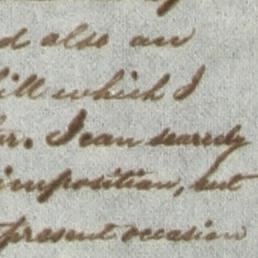 d also an
ill which I
for. I can scarcely
imposition, but
present occasion